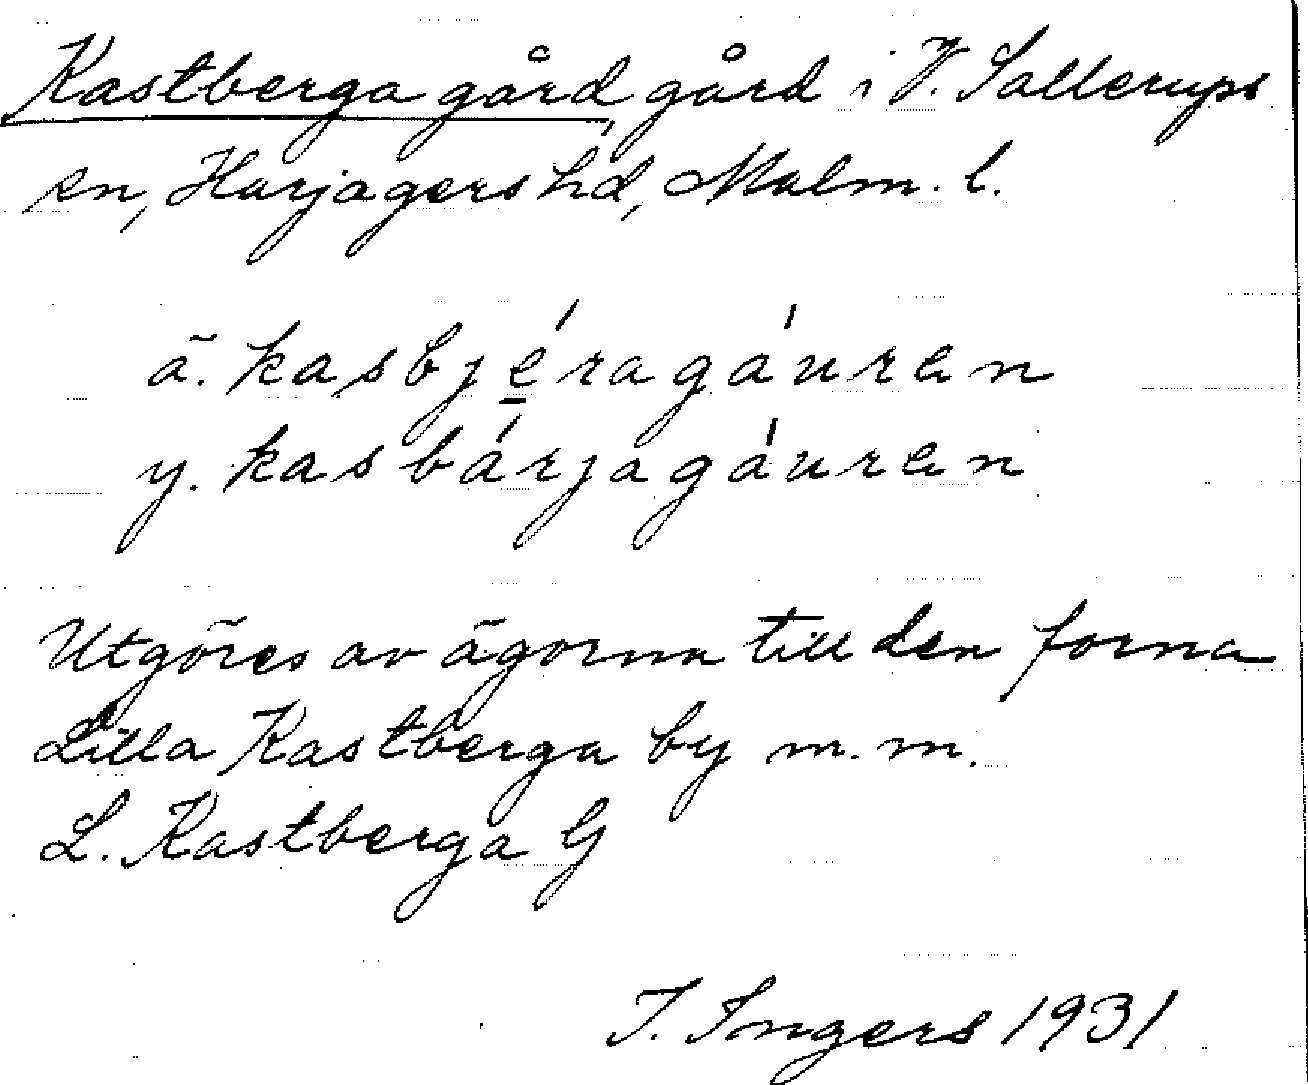 Kastberga gård, gård i V. Sallerups
sn, Harjagers hd, Malm. l.
ä. kasbjé̱ragáuren
y. kasbárjagáuren
Utgöres av ägorna till den forna
Lilla Kastberga by m. m.
L. Kastberga G
I. Ingers 1931